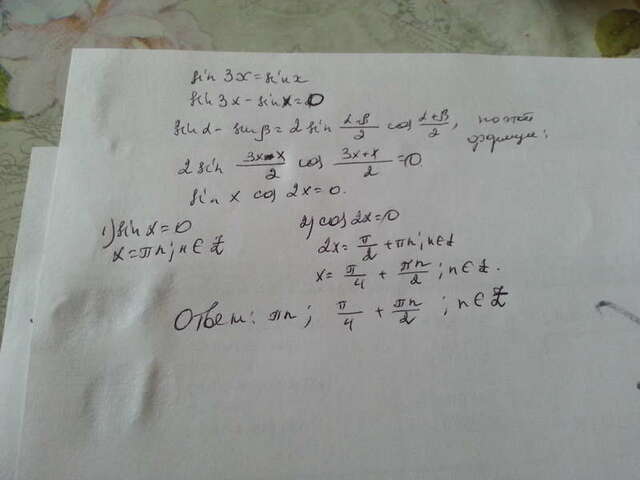 sin 3x = sin x
sin 3x - sin x = 0
sin α - sin β = 2 sin (α-β)/2 cos (α+β)/2, по этой формуле:
2 sin (3x-x)/2 cos (3x+x)/2 = 0
sin x cos 2x = 0.
1) sin x = 0
x = πn; n ∈ Z
2) cos 2x = 0
2x = π/2 + πn; n ∈ Z
x = π/4 + πn/2; n ∈ Z.
Ответ: πn; π/4 + πn/2; n ∈ Z